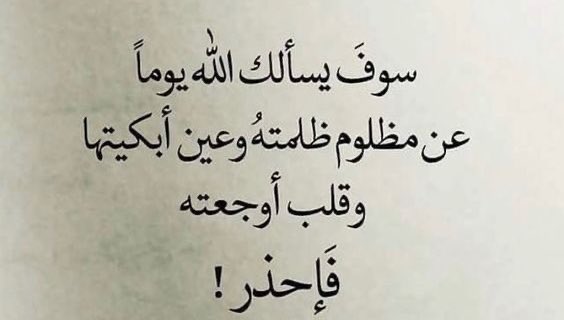 سوفَ يسألك الله يوماً
عن مظلوم ظلمتهُ وعين أبكيتها
وقلب أوجعته
فَإحذر !